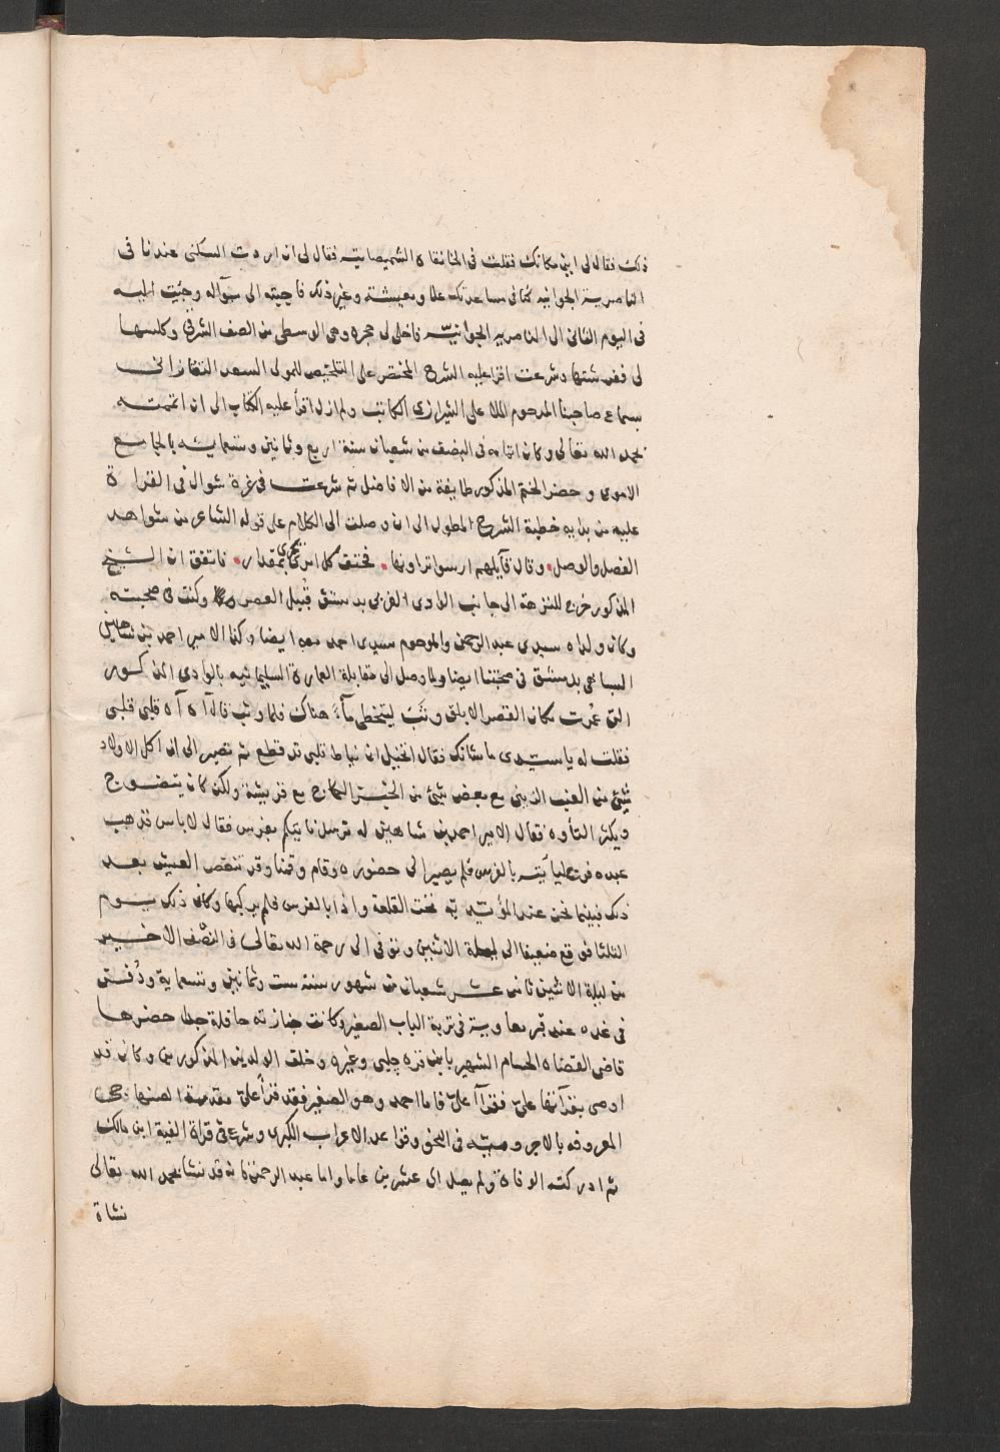 ذلك فقال لي اين مكانك فقلت في الخانقاه الشميصاتيه فقال لي ان اردت السكنى عندنا في
الناصرية الجوانيه كنا في مساعدتك علما ومعيشة وغير ذلك فاجبته الى سؤاله وجئت اليه
في اليوم الثاني الى الناصريه الجوانيّه فاخلى لي حجره وهي الوسطى من الصف الشرقي وكلسها
لي ففرشتها وشرعت اقرا عليه الشرح المختصر على التلخيص للمولى السعد التفتازاني
بسماع صاحبنا المرحوم الملا على الشيرازي الكاتب ولم ازل اقرأ عليه الكتاب الى ان اتممته
بحمد الله تعالى وكان اتمامه في النصف من شعبان سنة اربع وثمانين وتسعمايه بالجامع
الاموي وحضر الختم المذكور طايفة من الافاضل ثم شرعت في غرة شوال في القراة
عليه من بدايه خطبة الشرح المطول الى ان وصلت الى الكلام على قوله الشاعر من شواهد
الفصل والوصل وقال قآيلهم ارسوا تزاولها فحتف كل امرئ يجري بمقدار فاتفق ان الشيخ
المذكور خرج للنزهة الى جانب الوادى الغربي بدمشق قُبيل العصر وكنت في صحبته
وكان ولداه سيدى عبد الرحمن والمرحوم سيدى احمد معه ايضا وكذا الامير احمد بن شاهين
السباهي بدمشق في صحبتنا ايضا ولما وصل الى مقابلة العمارة السليمانيه بالوادى المذكور
التى عُمرت مكان القصر الابلق وثب ليتخطى مآءً هناك فلما وثب قال آه آه قلبي قلبى
فقلت له يا سيدى ما شانك فقال اتخيل ان نياط قلبي قد قطع ثم تصبر الى ان اكل الاولاد
شيئ من العنب الزيني مع بعض شيئ من الخبز الكماج مع قريشة ولكن كان يتضوج
ويكثر التأوه فقال الامير احمد بن شاهين له نرسل ناتيكم بفرس فقال لا باس فذهب
عبده فرحليا يته بالفرس فلم يصبر الى حضوره وقام وقمنا وقد تنغص العيش بعد
ذلك فبينما نحن عند المؤيديّه تحت القلعة واذا بالفرس فلم يركبها وكان ذلك يوم
الثلثا فوقع ضعيفا الى ليلة الاثنين وتوفى الى رحمة الله تعالى في النصف الاخير
من ليلة الاثنين ثانى عشر شعبان من شهور سنة ست وثمانين وتسعماية ودُفن
في غده عند قبر معاوية في تربة الباب الصغير وكانت جنازته حافلة جدا حضرها
قاضى القضاه الحسام الشهير بابن قره چلبى وغيره وخلف الولدين المذكورين وكان قد
اوصى بقرآتهما عليّ فقرآا عليّ فاما احمد وهو الصغير فقد قرأ عليّ مقدمة
المعروفه بالاجروميّه في النحو وقواعد الاعراب الكبرى وشرع في قراة الفية ابن مالك
ثم ادركته الوفاة ولم يصل الى عشرين عاما واما عبد الرحمن فانه قد نشا بحمد الله تعالى
نشاة